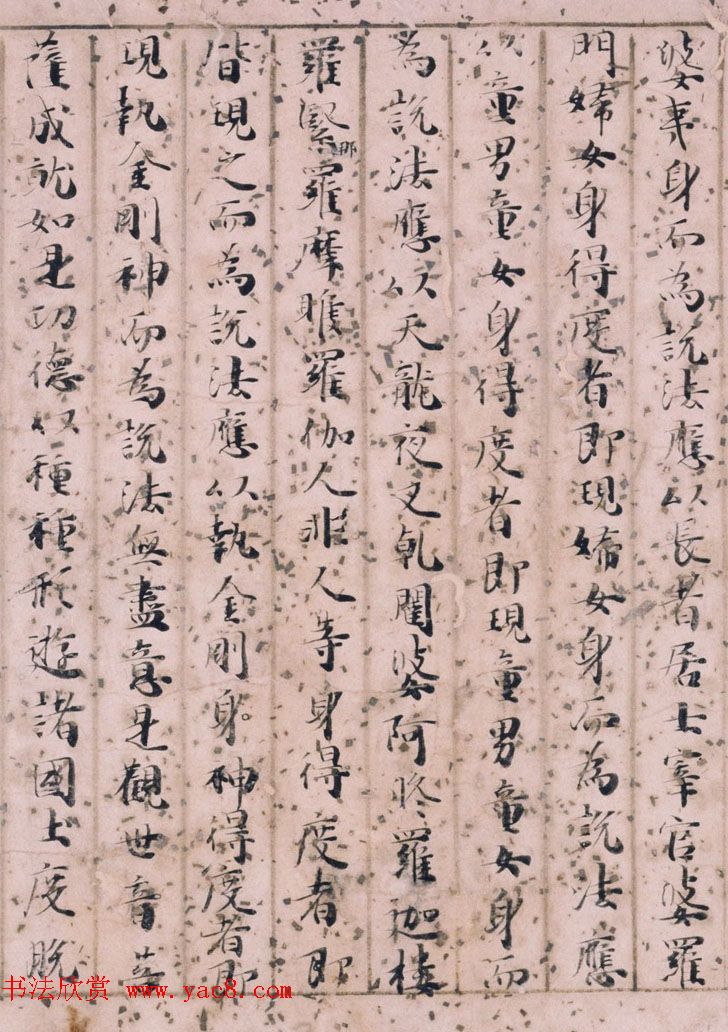 婆夷身而為説法應以長者居士宰官婆羅
門婦女身得度者即現婦女身而為説法應
以童男童女身得度者即現童男童女身而
為説法應以天龍夜叉乹闥婆阿脩羅迦樓
羅緊那羅摩睺羅伽人非人等身得度者即
皆現之而為説法應以執金剛身神得度者即
現執金剛神而為説法無盡意是觀世音菩
薩成就如是功德以種種形遊諸國土度脱
书法欣赏 www.yac8.com